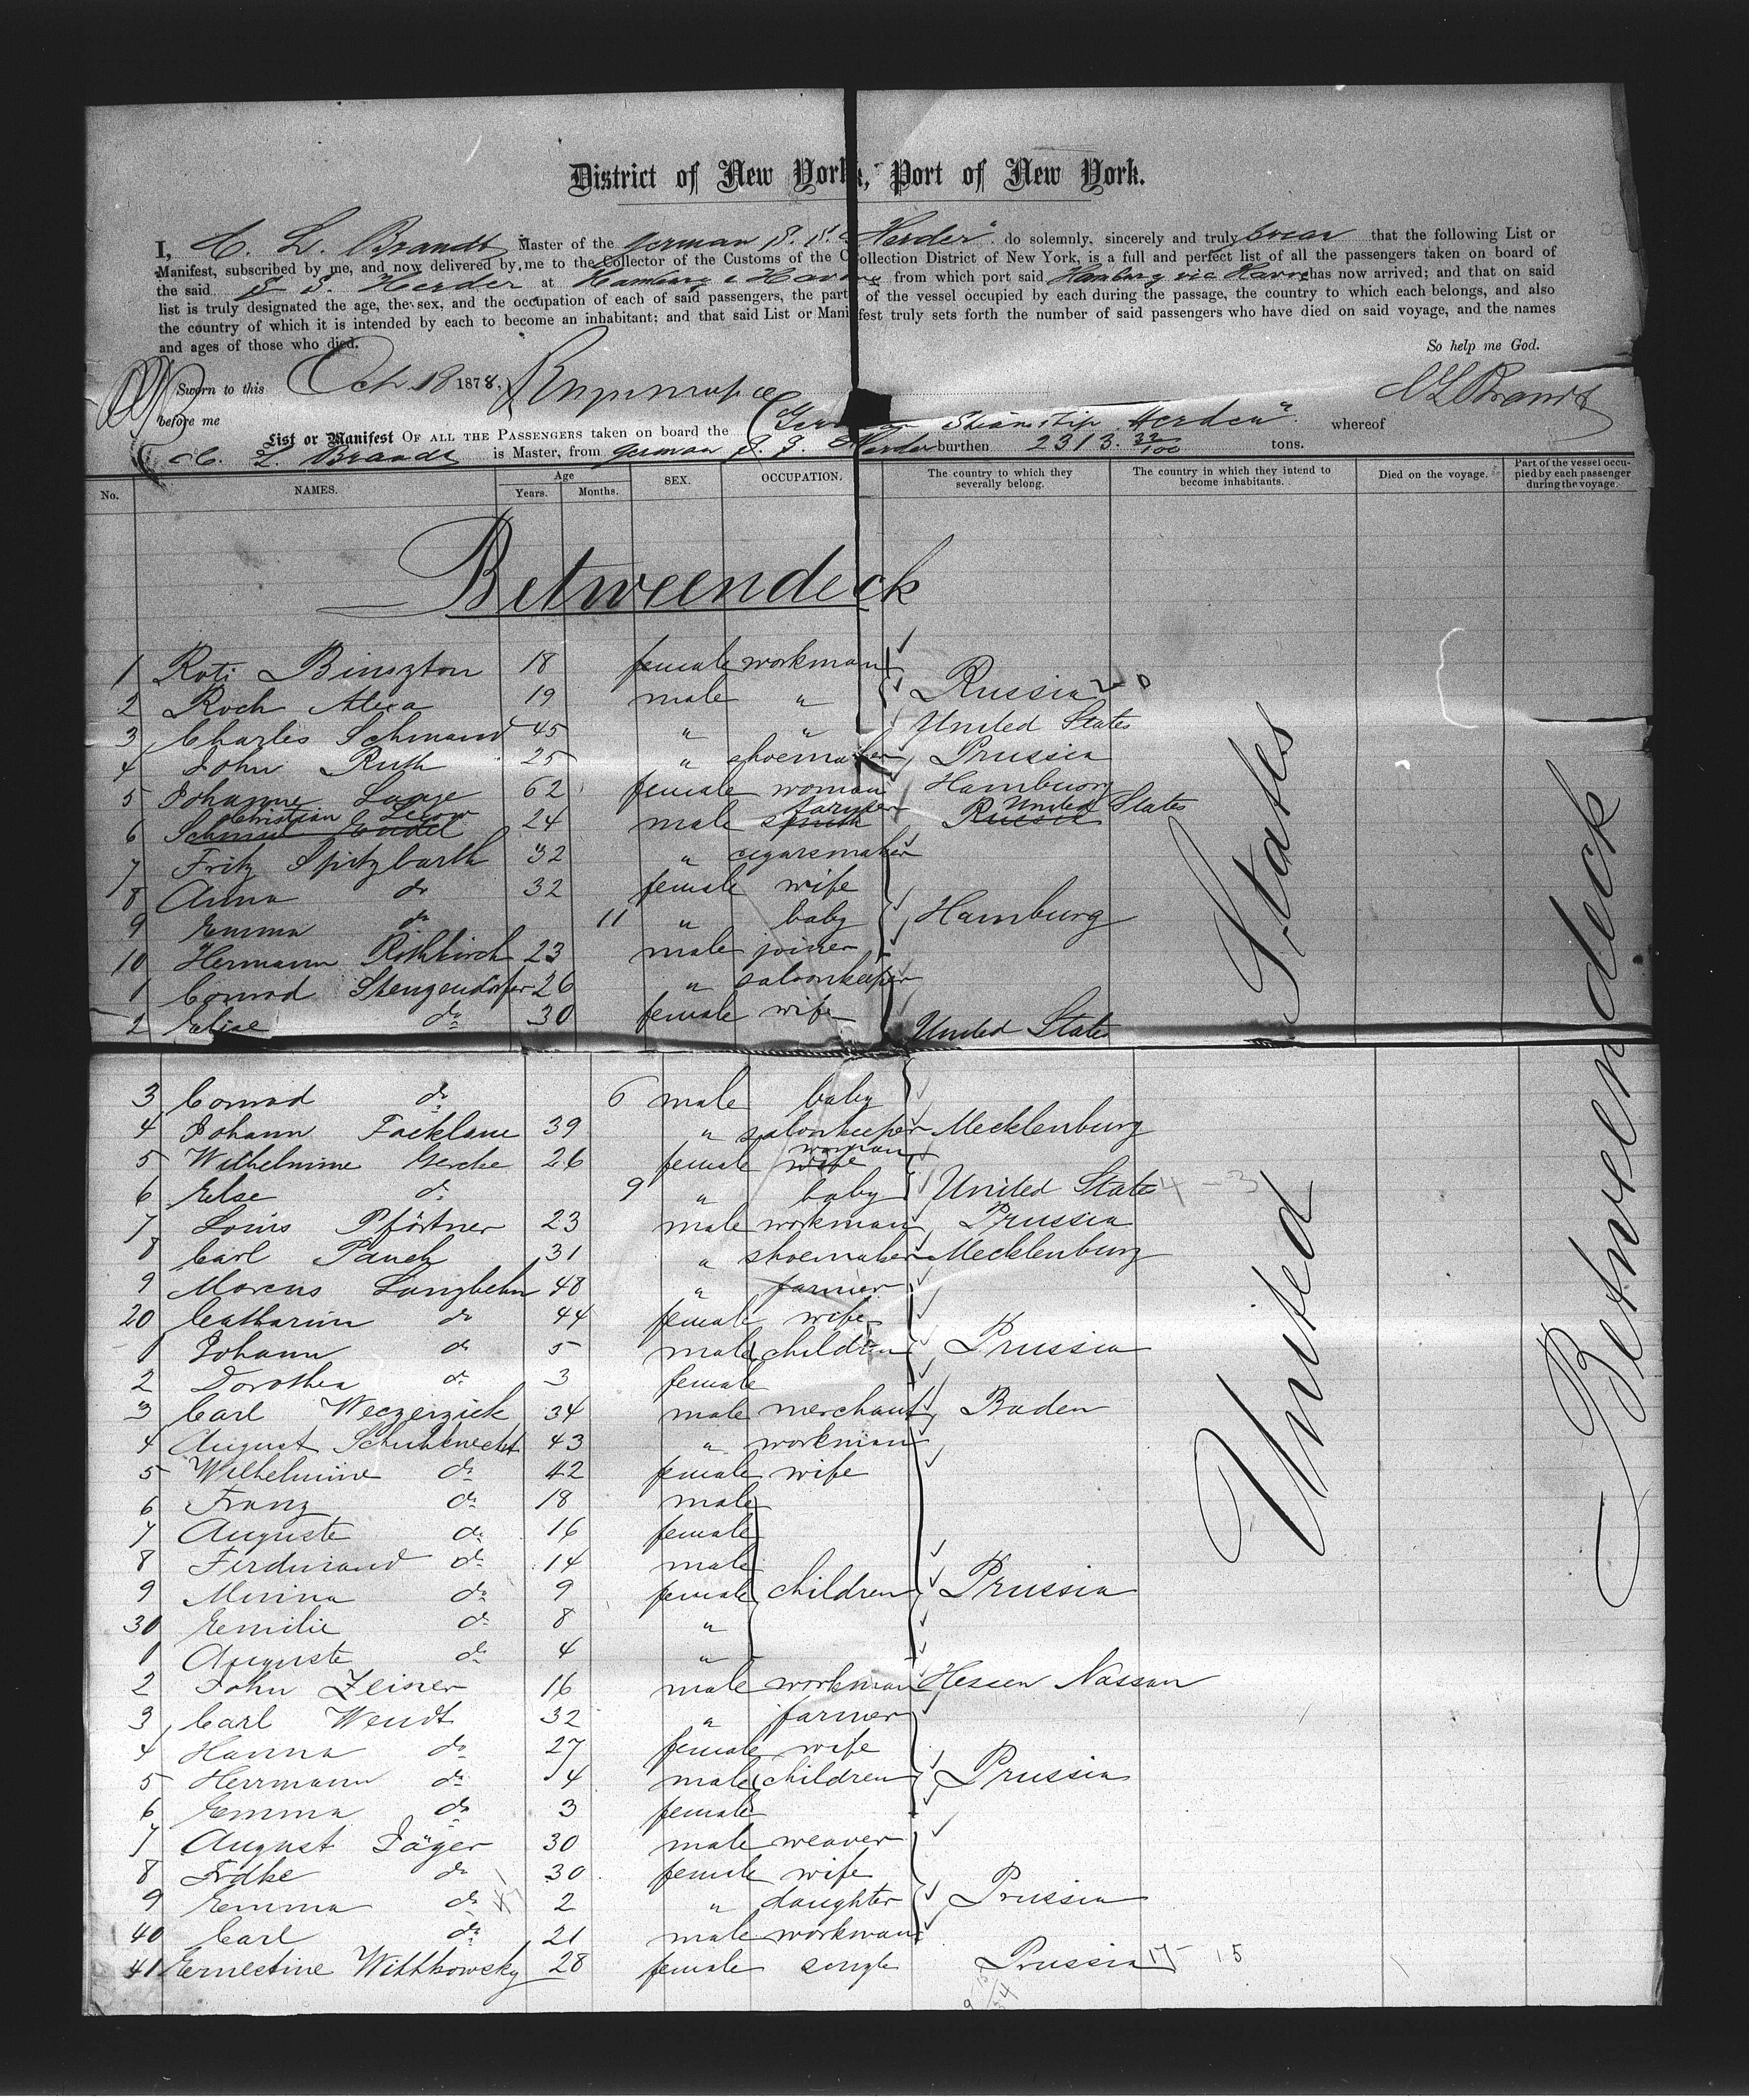 District of New York, Port of New York.
I, C. L. Brandt Master of the german S. S. "Herder" do solemnly, sincerely and truly swear that the following List or
Manifest, subscribed by me, and now delivered by me to the Collector of the Customs of the Collection District of New York, is a full and perfect list of all the passengers taken on board of
the said S. S. Herder at Hamburg & Havre from which port said Hamburg via Havre has now arrived; and that on said
list is truly designated the age, the sex, and the occupation of each of said passengers, the part of the vessel occupied by each during the passage, the country to which each belongs, and also
the country of which it is intended by each to become an inhabitant; and that said List or Manifest truly sets forth the number of said passengers who have died on said voyage, and the names
and ages of those who died.
So help me God.
Sworn to this Oct 18 1878,
before me
C L Brandt
List or Manifest OF ALL THE PASSENGERS taken on board the German Steamship Herder" whereof
C. L. Brandt is Master, from german S. S. Herder burthen 2313. 32/100 tons.
No. NAMES. Age Years. Months. SEX. OCCUPATION. The country to which they severally belong. The country in which they intend to become inhabitants. Died on the voyage. Part of the vessel occupied by each passenger during the voyage.
Betweendeck
1 Roti 18 female workman
2 Roch Alexa 19 male " Russia
3 Charles Schmand 45 " " United States
4 John Ruth 25 " shoemaker Prussia
5 Johanne Lange 62 female woman Hamburg
Christian farmer United States
6 24 male smith Russia
7 Fritz Spitzbarth 32 " cigarsmaker
8 Anna do 32 female wife
9 Emma do 11 " baby Hamburg
10 Hermann Rothkirch 23 male joiner
1 Conrad Stengendorfer 26 " saloonkeeper
2 Elise do 30 female wife United States
3 Conrad do 6 male baby
4 Johann Facklane 39 " saloonkeeper Mecklenburg
5 Wilhelmine Gercke 26 female wife woman
6 Else do 9 " baby United States 4 - 3
7 Louis Pförtner 23 male workman Prussia
8 Carl Panck 31 " shoemaker Mecklenburg
9 Marcus Langbehn 48 " farmer
20 Catharin do 44 female wife
1 Johann do 5 male children Prussia
2 Dorothea do 3 female
3 Carl Weczerzick 34 male merchant Baden
4 August Schuhknecht 43 " workman
5 Wilhelmine do 42 female wife
6 Franz do 18 male
7 Auguste do 16 female
8 Ferdinand do 14 male
9 Minna do 9 female children Prussia
30 Emilie do 8 "
1 Auguste do 4 "
2 John Zeiner 16 male workman Hessen Nassau
3 Carl Wendt 32 " farmer
4 Hanna do 27 female wife
5 Herrmann do 4 male children Prussia
6 Emma do 3 female
7 August Jäger 30 male weaver
8 Frdke do 30 female wife
9 Emma do 2 " daughter Prussia
40 Carl do 21 male workman
41 Ernestine Witthowsky 28 female single Prussia 15
United States
Betweendeck